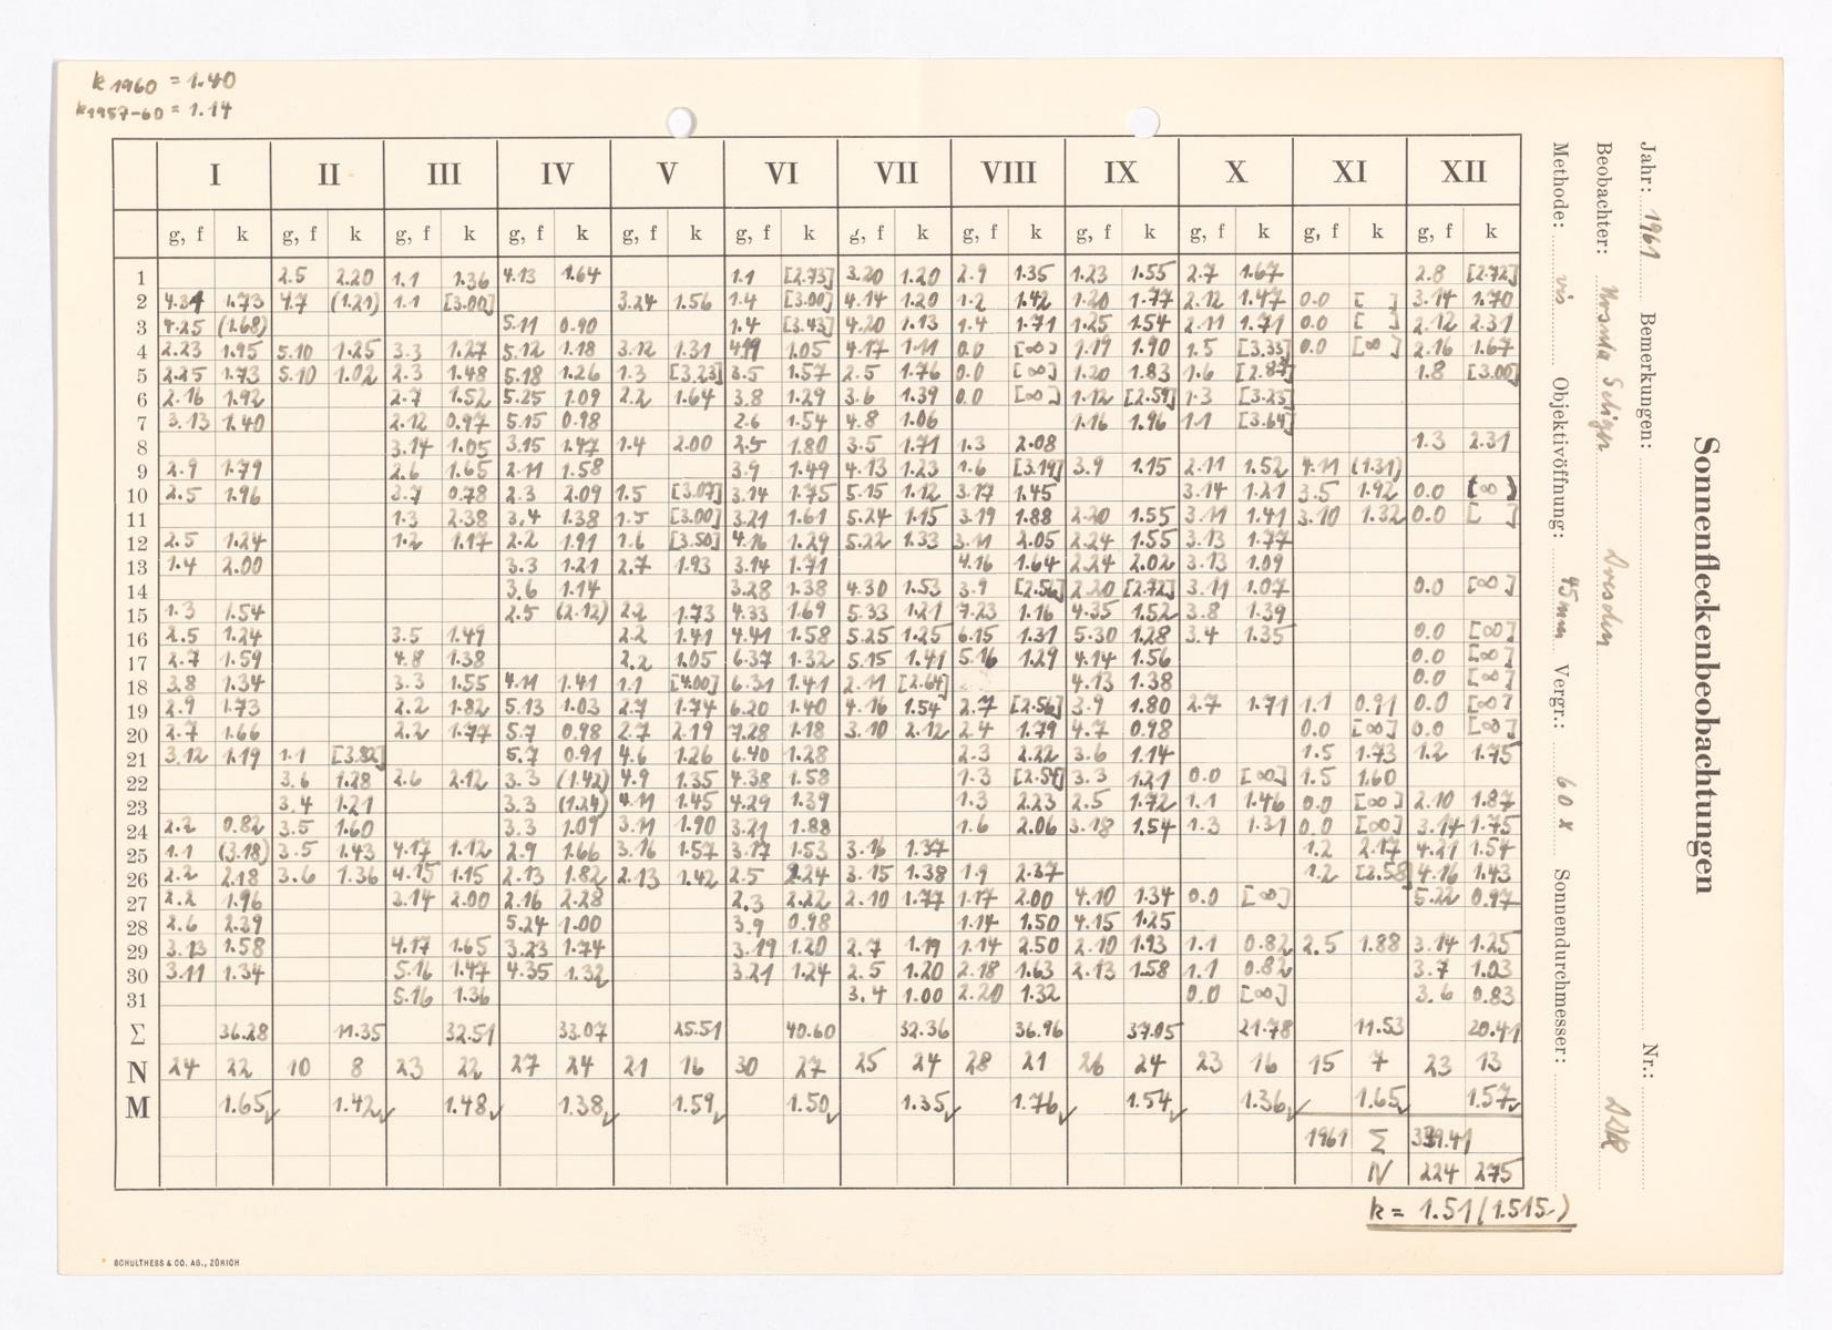 k 1960 = 1.40
k 1957-60 = 1.14
I II III IV V VI VII VIII IX X XI XII
g, f k g, f k g, f k g, f k g, f k g, f k g, f k g, f k g, f k g, f k g, f k g, f k
1 2.5 2.20 1.1 1.36 4.13 1.64 1.1 [2.73] 3.20 1.20 2.9 1.35 1.23 1.55 2.7 1.67 2.8 [2.72]
2 4.34 1.73 4.7 (1.21) 1.1 [3.00] 3.24 1.56 1.4 [3.00] 4.14 1.20 1.2 1.42 1.20 1.77 2.12 1.47 0.0 [ ] 3.14 1.70
3 4.25 (1.68) 5.11 0.90 1.4 [3.43] 4.20 1.13 1.4 1.71 1.25 1.54 2.11 1.71 0.0 [ ] 2.12 2.31
4 2.23 1.95 5.10 1.25 3.3 1.27 5.12 1.18 3.12 1.31 1.05 4.17 1.11 0.0 [∞] 1.19 1.90 1.5 [3.33] 0.0 [∞] 2.16 1.67
5 2.25 1.73 5.10 1.02 2.3 1.48 5.18 1.26 1.3 [3.23] 3.5 1.57 2.5 1.76 0.0 [∞] 1.20 1.83 1.6 [2.87] 1.8 [3.00]
6 2.16 1.92 2.7 1.52 5.25 1.09 2.2 1.64 3.8 1.29 3.6 1.39 0.0 [∞] 1.12 [2.59] 1.3 [3.25]
7 3.13 1.40 2.12 0.97 5.15 0.98 2.6 1.54 4.8 1.06 1.16 1.96 1.1 [3.64]
8 3.14 1.05 3.15 1.47 1.4 2.00 2.5 1.80 3.5 1.71 1.3 2.08 1.3 2.31
9 2.9 1.79 2.6 1.65 2.11 1.58 3.9 1.49 4.13 1.23 1.6 [3.19] 3.9 1.15 2.11 1.52 4.11 (1.31)
10 2.5 1.96 2.7 0.78 2.3 2.09 1.5 [3.07] 3.14 1.75 5.15 1.12 3.17 1.45 3.14 1.21 3.5 1.92 0.0 [∞]
11 1.3 2.38 3.4 1.38 1.5 [3.00] 3.21 1.61 5.24 1.15 3.19 1.88 2.20 1.55 3.11 1.41 3.10 1.32 0.0 [ ]
12 2.5 1.24 1.2 1.17 2.2 1.91 1.6 [3.50] 4.16 1.29 5.22 1.33 3.11 2.05 2.24 1.55 3.13 1.77
13 1.4 2.00 3.3 1.21 2.7 1.93 3.14 1.71 4.16 1.64 2.24 2.02 3.13 1.09
14 3.6 1.14 3.28 1.38 4.30 1.53 3.9 [2.56] 2.20 [2.72] 3.11 1.07 0.0 [∞]
15 1.3 1.54 2.5 (2.12) 2.2 1.73 4.33 1.69 5.33 1.21 7.23 1.16 4.35 1.52 3.8 1.39
16 2.5 1.24 3.5 1.49 2.2 1.41 4.41 1.58 5.25 1.25 6.15 1.31 5.30 1.28 3.4 1.35 0.0 [∞]
17 2.7 1.59 4.8 1.38 2.2 1.05 6.37 1.32 5.15 1.41 5.16 1.29 4.14 1.56 0.0 [∞]
18 3.8 1.34 3.3 1.55 4.11 1.41 1.1 [4.00] 6.31 1.41 2.11 [2.64] 4.13 1.38 0.0 [∞]
19 2.9 1.73 2.2 1.82 5.13 1.03 2.7 1.74 6.20 1.40 4.16 1.54 2.7 [2.56] 3.9 1.80 2.7 1.71 1.1 0.91 0.0 [∞]
20 2.7 1.66 2.2 1.77 5.7 0.98 2.7 2.19 7.28 1.18 3.10 2.12 2.4 1.79 4.7 0.98 0.0 [∞] 0.0 [∞]
21 3.12 1.19 1.1 [3.82] 5.7 0.91 4.6 1.26 6.40 1.28 2.3 2.22 3.6 1.14 1.5 1.73 1.2 1.75
22 3.6 1.28 2.6 2.12 3.3 (1.42) 4.9 1.35 4.38 1.58 1.3 [2.54] 3.3 1.21 0.0 [∞] 1.5 1.60
23 3.4 1.21 3.3 (1.24) 4.11 1.45 4.29 1.39 1.3 2.23 2.5 1.72 1.1 1.46 0.0 [∞] 2.10 1.87
24 2.2 0.82 3.5 1.60 3.3 1.07 3.11 1.90 3.21 1.88 1.6 2.06 3.18 1.54 1.3 1.31 0.0 [∞] 3.14 1.75
25 1.1 (3.18) 3.5 1.43 4.17 1.12 2.9 1.66 3.16 1.57 3.17 1.53 3.16 1.37 1.2 2.17 4.21 1.54
26 2.2 2.18 3.6 1.36 4.15 1.15 2.13 1.82 2.13 1.42 2.5 2.24 3.15 1.38 1.9 2.37 1.2 [2.58] 4.16 1.43
27 2.2 1.96 3.14 2.00 2.16 2.28 2.3 2.22 2.10 1.77 1.17 2.00 4.10 1.34 0.0 [∞] 5.22 0.97
28 2.6 2.39 5.24 1.00 3.9 0.98 1.14 1.50 4.15 1.25
29 3.13 1.58 4.17 1.65 3.23 1.74 3.19 1.20 2.7 1.19 1.14 2.50 2.10 1.93 1.1 0.82 2.5 1.88 3.14 1.25
30 3.11 1.34 5.16 1.47 4.35 1.32 3.21 1.24 2.5 1.20 2.18 1.63 2.13 1.58 1.1 0.82 3.7 1.03
31 5.16 1.36 3.4 1.00 2.20 1.32 0.0 [∞] 3.6 0.83
Σ 36.28 11.35 32.51 33.07 25.51 40.60 32.36 36.96 37.05 21.78 11.53 20.41
N 24 22 10 8 23 22 27 24 21 16 30 27 25 24 28 21 26 24 23 16 15 7 23 13
M 1.65 1.42 1.48 1.38 1.59 1.50 1.35 1.76 1.54 1.36 1.65 1.57
1961 Σ 339.41
N 224 275
k = 1.51 (1.515-)
SCHULTHESS & CO. AG., ZÜRICH
Sonnenfleckenbeobachtungen
Jahr: 1961 Bemerkungen: Nr.:
Beobachter: Ursula Dresden DDR
Methode: vis Objektivöffnung: 45mm Vergr.: 60 x Sonnendurchmesser: